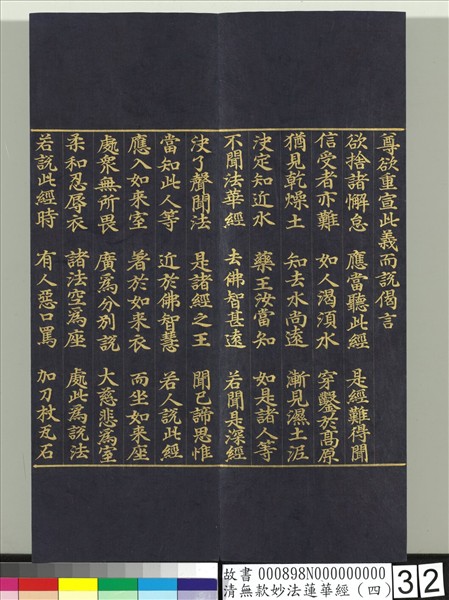 尊欲重宣此義而說偈言
欲捨諸懈怠　應當聽此經　是經難得聞
信受者亦難　如人渴須水　穿鑿於高原
猶見乾燥土　知去水尚遠　漸見濕土泥
決定知近水　藥王汝當知　如是諸人等
不聞法華經　去佛智甚遠　若聞是深經
決了聲聞法　是諸經之王　聞已諦思惟
當知此人等　近於佛智慧　若人說此經
應入如來室　著於如來衣　而坐如來座
處眾無所畏　廣為分別說　大慈悲為室
柔和忍辱衣　諸法空為座　處此為說法
若說此經時　有人惡口罵　加刀杖瓦石
故書 000898N000000000
清無款妙法蓮華經（四）
32